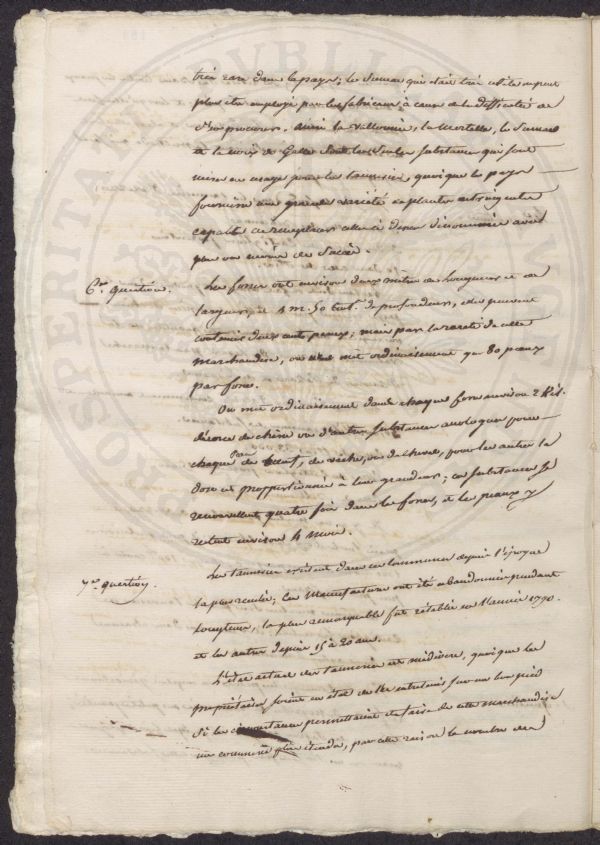 très rare dans le pays; le Sumac qui était très utile ne peut
plus être employé par les fabricans, à cause de la difficulté de
s'en procurer. Ainsi la Vallonnée, la Mortelle, le Sumac
et la noix de Galle sont les seules substances qui sont
mises en usage pour les tanneries, quoique le pays
fournisse une grande variété de plantes astringentes
capables de remplacer celles à
peu
6.e question. Les fosses ont environ deux mètres de longueur et de
largeur, et 1 m. 50 cent. de profondeur, elles peuvent
contenir deux cents peaux; mais par la rareté de cette
marchandise, on n'en met ordinairement que 80 peaux
par fosse.
On met ordinairement dans chaque fosse environ 2 Kil.
d'écorce de chêne ou d'autre substance analogue pour
chaque peau de bœuf, de vache, ou de cheval, pour les autres la
dose est proportionnée à leur grandeur; ces substances se
renouvellent quatre fois dans les fosses, et les peaux y
restent environ 4 mois.
7.e question. Les tanneries existent dans ces communes depuis l'époque
la plus reculée; ces Manufactures ont été abandonnées pendant
longtems, la plus remarquable fut rétablie en l'année 1790.
et les autres depuis 15 à 20 ans.
L'état actuel des tanneries est médiocre, quoique les
propriétaires soient en état de les entretenir sur un bon pied
si les circonstances permettaient de faire de cette marchandise
un commerce plus étendu, par cette raison le nombre des
PROSPERITATI PVBLICAE